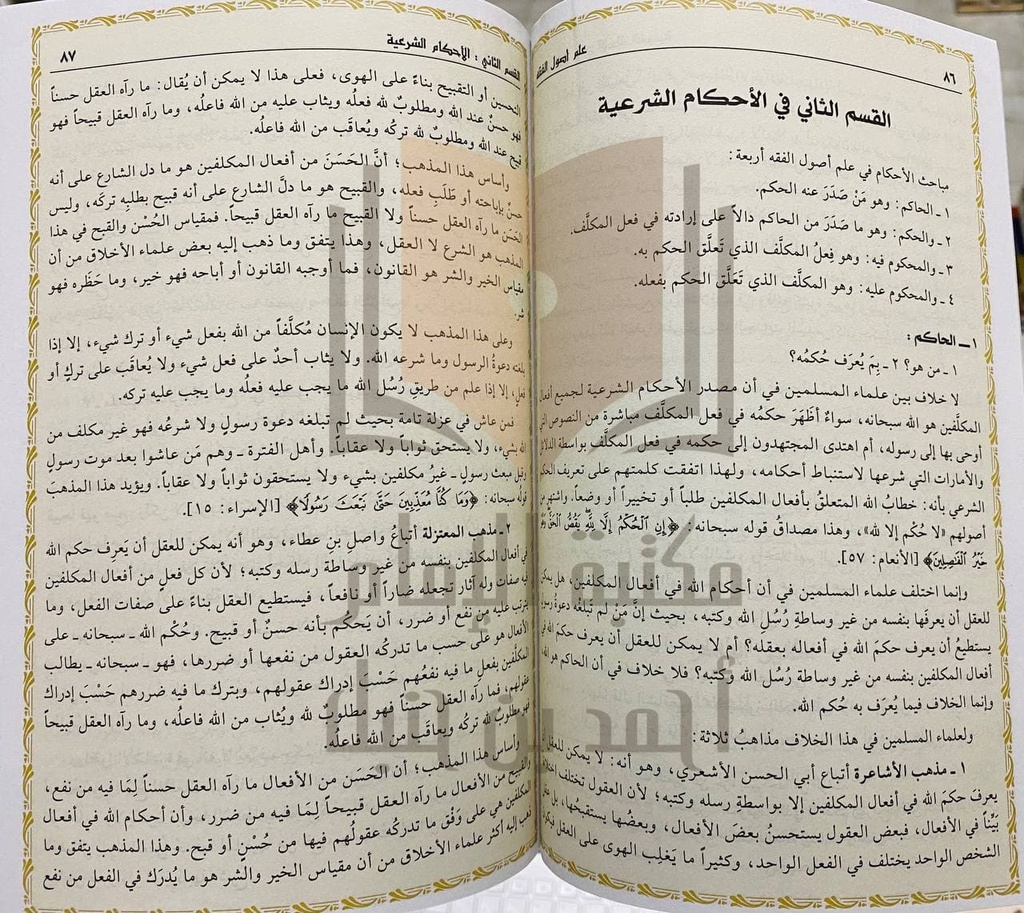 ٨٦
علم أصول الفقه
القسم الثاني في الأحكام الشرعية
مباحث الأحكام في علم أصول الفقه أربعة:
١ ـ الحاكم: وهو مَنْ صَدَرَ عنه الحكم.
٢ ـ والحكم: وهو ما صَدَرَ من الحاكم دالاً على إرادته في فعل المكلَّف.
٣ ـ والمحكوم فيه: وهو فِعلُ المكلَّف الذي تَعلَّق الحكم به.
٤ ـ والمحكوم عليه: وهو المكلَّف الذي تَعَلَّق الحكم بفعله.
١ ـ الحاكم:
١ ـ من هو؟ ٢ ـ بِمَ يُعرَف حُكمُه؟
لا خلاف بين علماء المسلمين في أن مصدر الأحكام الشرعية لجميع أفعال
المكلَّفين هو الله سبحانه، سواءٌ أَظهَرَ حكمُه في فعل المكلَّف مباشرة من النصوص التي
أوحى بها إلى رسوله، أم اهتدى المجتهدون إلى حكمه في فعل المكلَّف بواسطة الدلائل
والأمارات التي شرعها لاستنباط أحكامه، ولهذا اتفقت كلمتهم على تعريف الحكم
الشرعي بأنه: خطابُ الله المتعلقُ بأفعال المكلفين طلباً أو تخييراً أو وضعاً. واشتهر من
أصولهم «لا حُكم إلا لله»، وهذا مصداقُ قوله سبحانه: ﴿إِنِ الْحُكْمُ إِلَّا لِلَّهِ يَقُصُّ الْحَقَّ وَهُوَ
خَيْرُ الْفَاصِلِينَ﴾ [الأنعام: ٥٧].
وإنما اختلف علماء المسلمين في أن أحكام الله في أفعال المكلفين، هل يمكن
للعقل أن يَعرِفها بنفسه من غير وساطةِ رُسُلِ الله وكتبه، بحيث إنَّ مَنْ لم تَبلغْه دعوةُ رسول
يستطيعُ أن يعرف حكمَ الله في أفعاله بعقله؟ أم لا يمكن للعقل أن يعرف حكمَ الله في
أفعال المكلفين بنفسه من غير وساطة رُسُل الله وكتبه؟ فلا خلاف في أن الحاكم هو الله
وإنما الخلاف فيما يُعرَف به حُكم الله.
ولعلماء المسلمين في هذا الخلاف مذاهبُ ثلاثة:
١ ـ مذهب الأشاعرة أتباع أبي الحسن الأشعري، وهو أنه: لا يمكن للعقل أن
يعرفَ حكمَ الله في أفعال المكلفين إلا بواسطةِ رسله وكتبه؛ لأن العقول تختلف اختلافاً
بَيِّناً في الأفعال، فبعض العقول يستحسنُ بعضَ الأفعال، وبعضها يستقبحُها، بل عقل
الشخص الواحد يختلف في الفعل الواحد، وكثيراً ما يَغلِب الهوى على العقل فيكون
القسم الثاني: الأحكام الشرعية
٨٧
التحسين أو التقبيح بناءً على الهوى، فعلى هذا لا يمكن أن يُقال: ما رآه العقل حسناً
فهو حسنٌ عند الله ومطلوبٌ لله فعلُه ويثاب عليه من الله فاعلُه، وما رآه العقل قبيحاً فهو
قبيح عند الله ومطلوبٌ لله تركُه ويُعاقَب من الله فاعلُه.
وأساس هذا المذهب؛ أنَّ الحَسَنَ من أفعال المكلفين هو ما دل الشارع على أنه
حسنٌ بإباحته أو طَلَبِ فعله، والقبيح هو ما دلَّ الشارع على أنه قبيح بطلبِه تركَه، وليس
الحَسَن ما رآه العقل حسناً ولا القبيح ما رآه العقل قبيحاً. فمقياس الحُسْن والقبح في هذا
المذهب هو الشرع لا العقل، وهذا يتفق وما ذهب إليه بعض علماء الأخلاق من أن
مقياس الخير والشر هو القانون، فما أوجبه القانون أو أباحه فهو خير، وما حَظَره فهو
شر.
وعلى هذا المذهب لا يكون الإنسان مُكلَّفاً من الله بفعل شيء أو ترك شيء، إلا إذا
بلغته دعوةُ الرسول وما شرعه الله. ولا يثاب أحدٌ على فعل شيء ولا يُعاقَب على تركٍ أو
فعل، إلا إذا علم من طريقِ رُسُلِ الله ما يجب عليه فعلُه وما يجب عليه تركه.
فمن عاش في عزلة تامة بحيث لم تبلغه دعوة رسولٍ ولا شرعُه فهو غير مكلف من
الله بشيء، ولا يستحق ثواباً ولا عقاباً. وأهل الفترة ـ وهم مَن عاشوا بعد موت رسولٍ
وقبل مبعث رسولٍ ـ غيرُ مكلفين بشيء ولا يستحقون ثواباً ولا عقاباً. ويؤيد هذا المذهبَ
قوله سبحانه: ﴿وَمَا كُنَّا مُعَذِّبِينَ حَتَّىٰ نَبْعَثَ رَسُولًا﴾ [الإسراء: ١٥].
٢ ـ مذهب المعتزلة أتباع واصل بن عطاء، وهو أنه يمكن للعقل أن يَعرِف حكم الله
في أفعال المكلفين بنفسه من غير وساطة رسله وكتبه؛ لأن كل فعلٍ من أفعال المكلفين
فيه صفات وله آثار تجعله ضاراً أو نافعاً، فيستطيع العقل بناءً على صفات الفعل، وما
يترتب عليه من نفع أو ضرر، أن يَحكُم بأنه حسنٌ أو قبيح. وحُكْم الله ـ سبحانه ـ على
الأفعال هو على حسب ما تدركُه العقول من نفعها أو ضررها، فهو ـ سبحانه ـ يطالب
المكلَّفين بفعلِ ما فيه نفعُهم حَسْبَ إدراك عقولهم، وبترك ما فيه ضررهم حَسْبَ إدراك
عقولهم، فما رآه العقل حسناً فهو مطلوبٌ لله ويُثاب من الله فاعلُه، وما رآه العقل قبيحاً
فهو مطلوبٌ لله تركُه ويعاقَب من الله فاعلُه.
وأساس هذا المذهب؛ أن الحَسَن من الأفعال ما رآه العقل حسناً لِمَا فيه من نفع،
والقبيح من الأفعال ما رآه العقل قبيحاً لِمَا فيه من ضرر، وأن أحكام الله في أفعال
المكلفين هي على وَفْق ما تدركُه عقولُهم فيها من حُسْنٍ أو قبح. وهذا المذهب يتفق وما
ذهب إليه أكثر علماء الأخلاق من أن مقياس الخير والشر هو ما يُدرَك في الفعل من نفع
مكتبة الإمام
أحمد بن حنبل